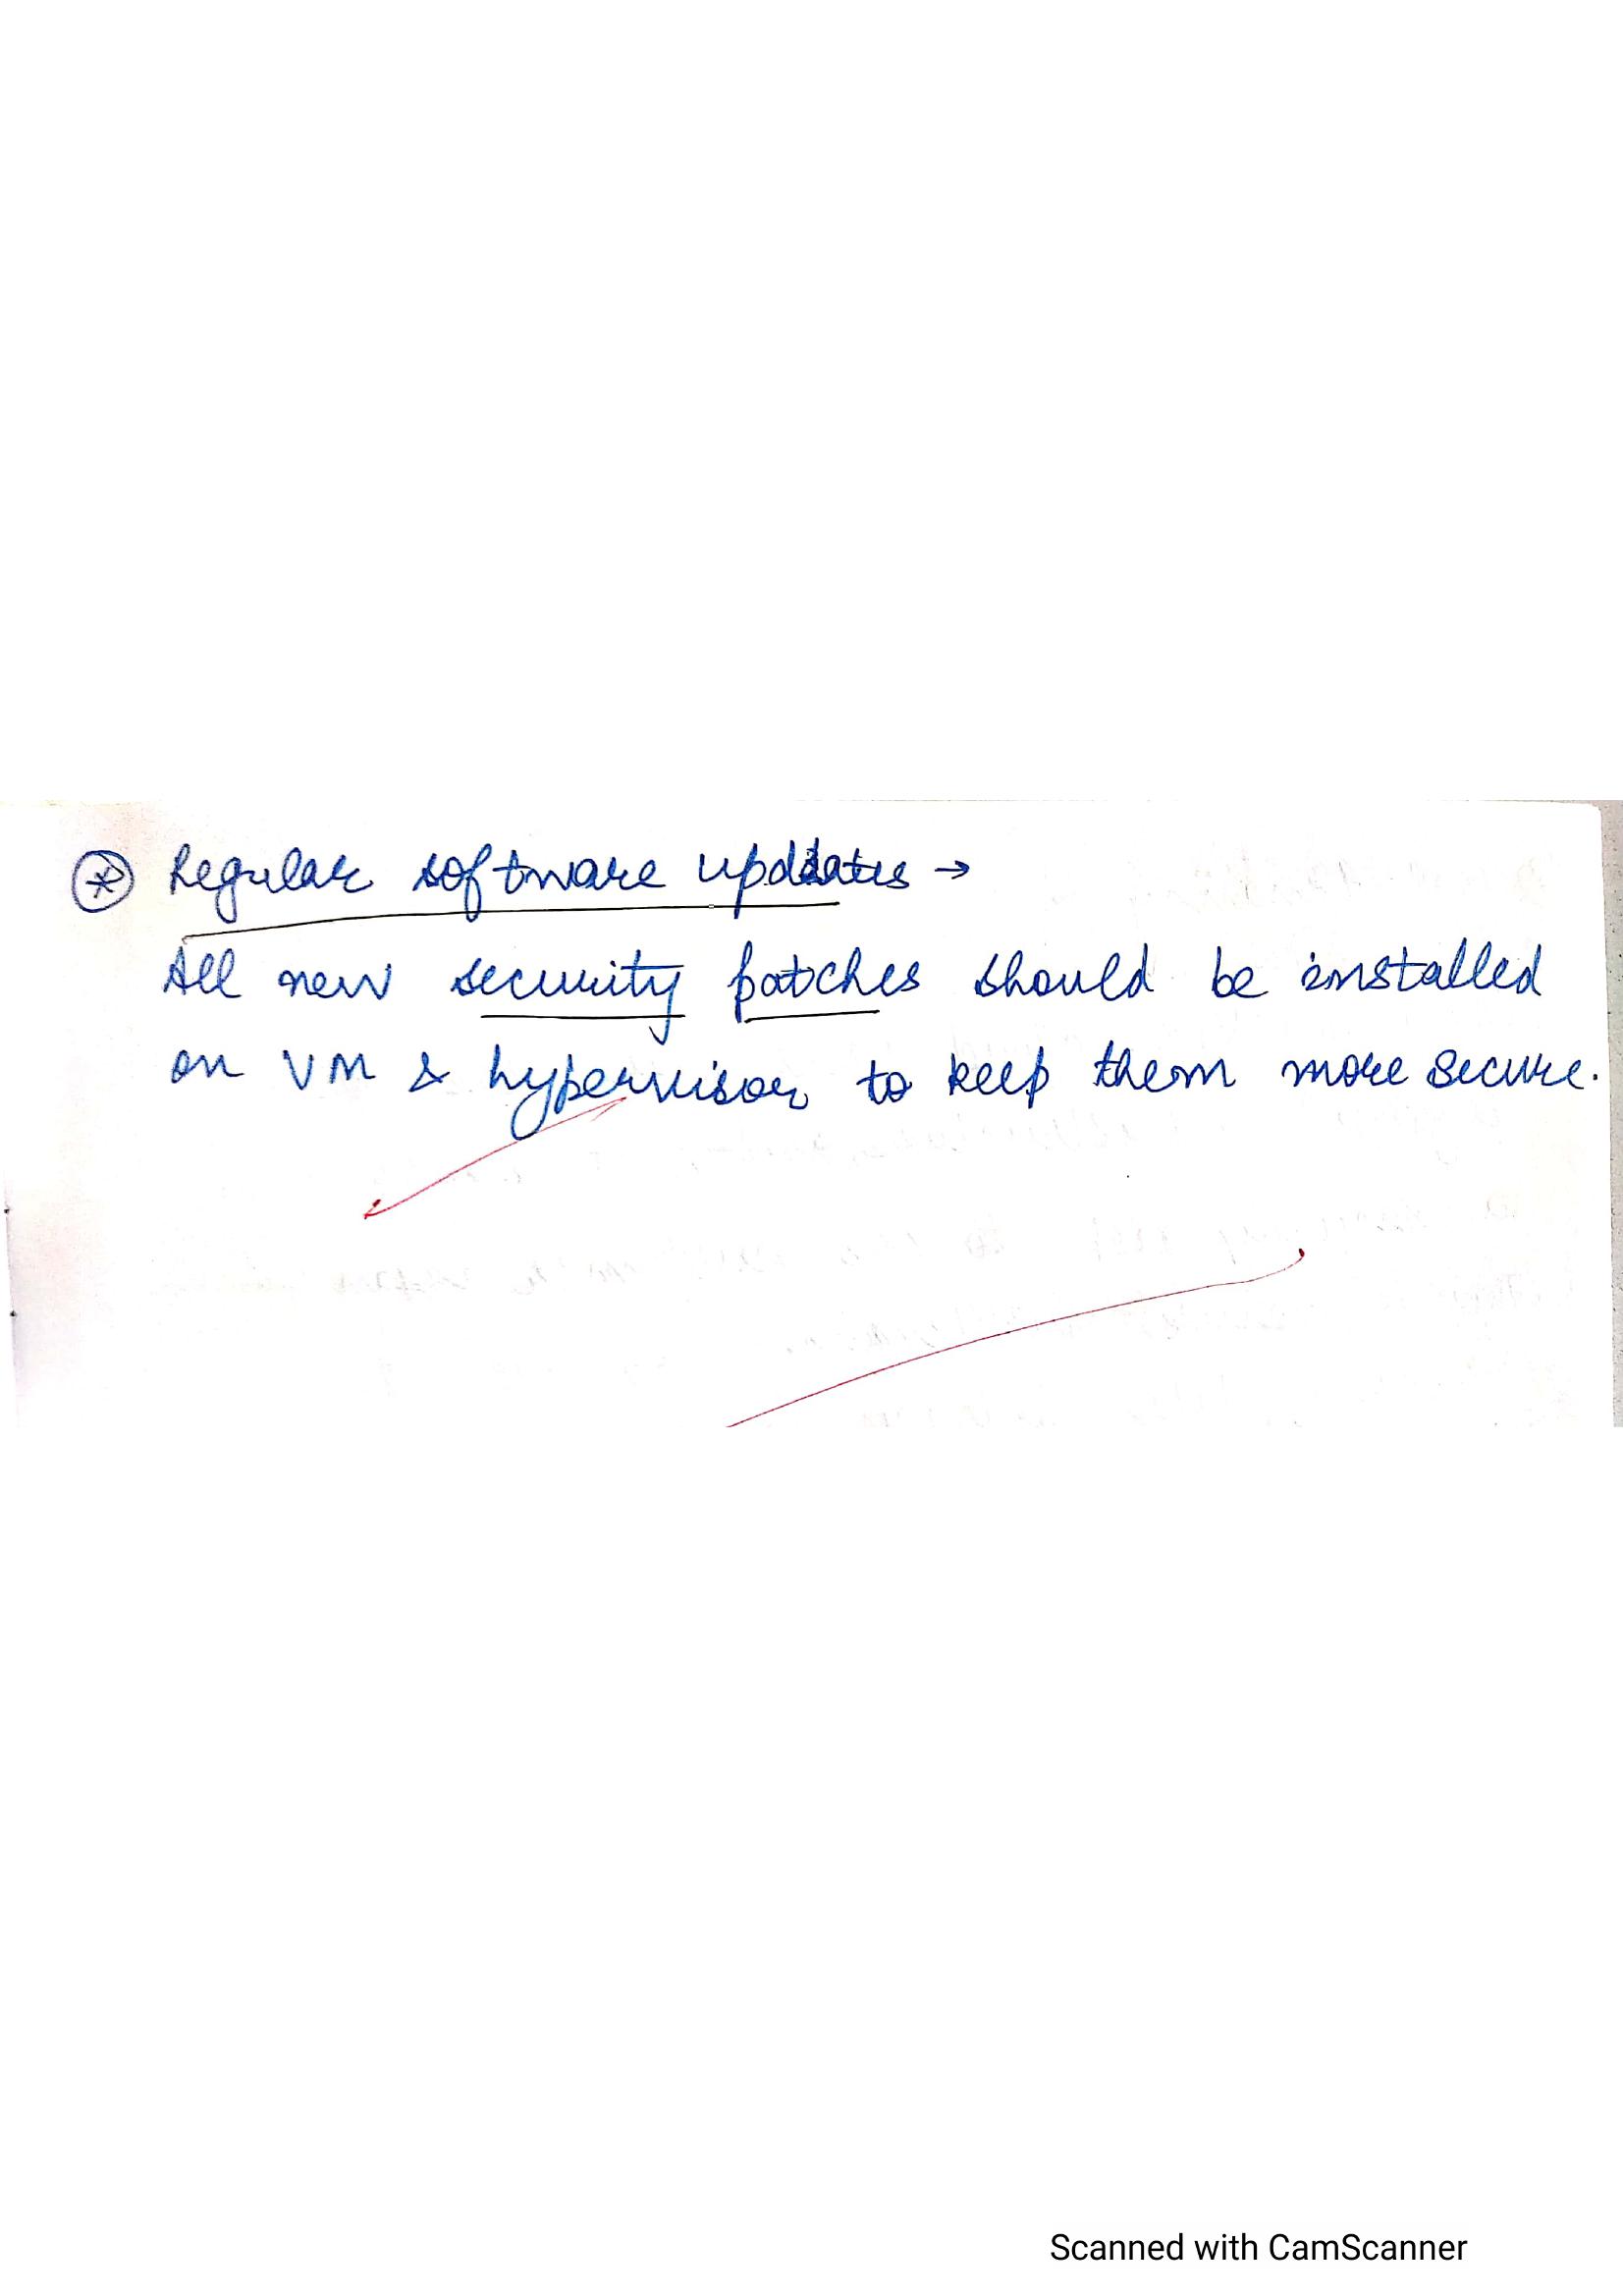 ⊛ Regular software updates →
All new security patches should be installed
on VM & hypervisor to keep them more secure.
Scanned with CamScanner